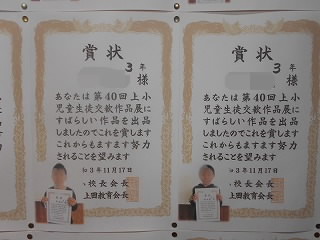 賞状
3年
様
あなたは第40回上小
児童生徒交歓作品展に
すばらしい作品を出品
しましたのでこれを賞します
これからもますます努力
されることを望みます
3年11月17日
校長会長
上田教育会長
賞状
3年
様
あなたは第40回上小
児童生徒交歓作品展に
すばらしい作品を出品
しましたのでこれを賞します
これからもますます努力
されることを望みます
3年11月17日
校長会長
上田教育会長